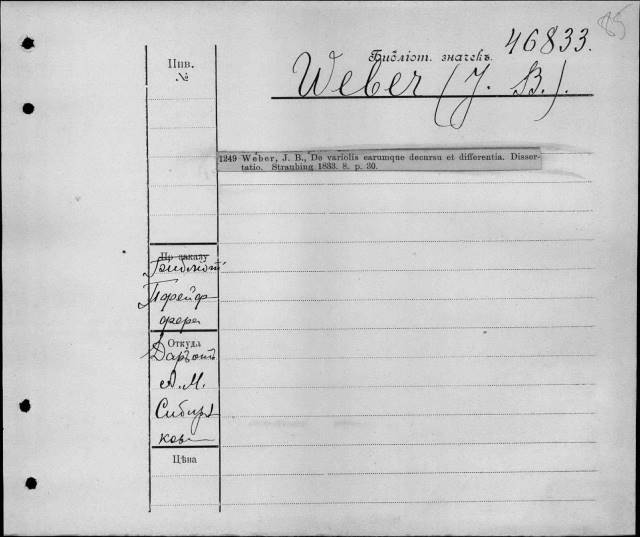 85
46833.
Библіот. значекъ.
Weber (J. B.).
Инв.
№
1249 Weber, J. B., De variolis earumque decursu et differentia. Disser-
tatio. Straubing 1833. 8. p. 30.
Пр заказу
Библіот
Пфейф-
фера
Откуда
Даръ отъ
А. М.
Сибиря-
кова
Цѣна